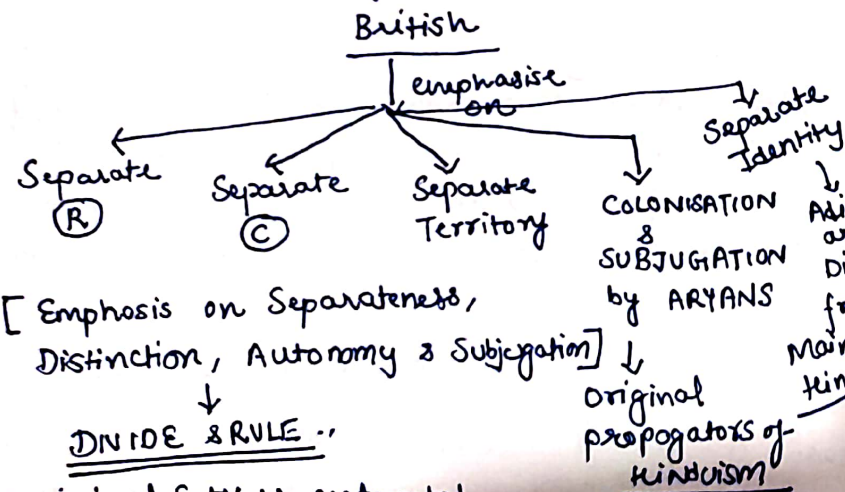 British
emphasise
on
Separate
R
Separate
C
Separate
Territory
COLONISATION
&
SUBJUGATION
by ARYANS
Separate
Identity
Original
propogators of
HINDUISM
[ Emphosis on Separateness,
Distinction, Autonomy & Subjugation]
DIVIDE & RULE